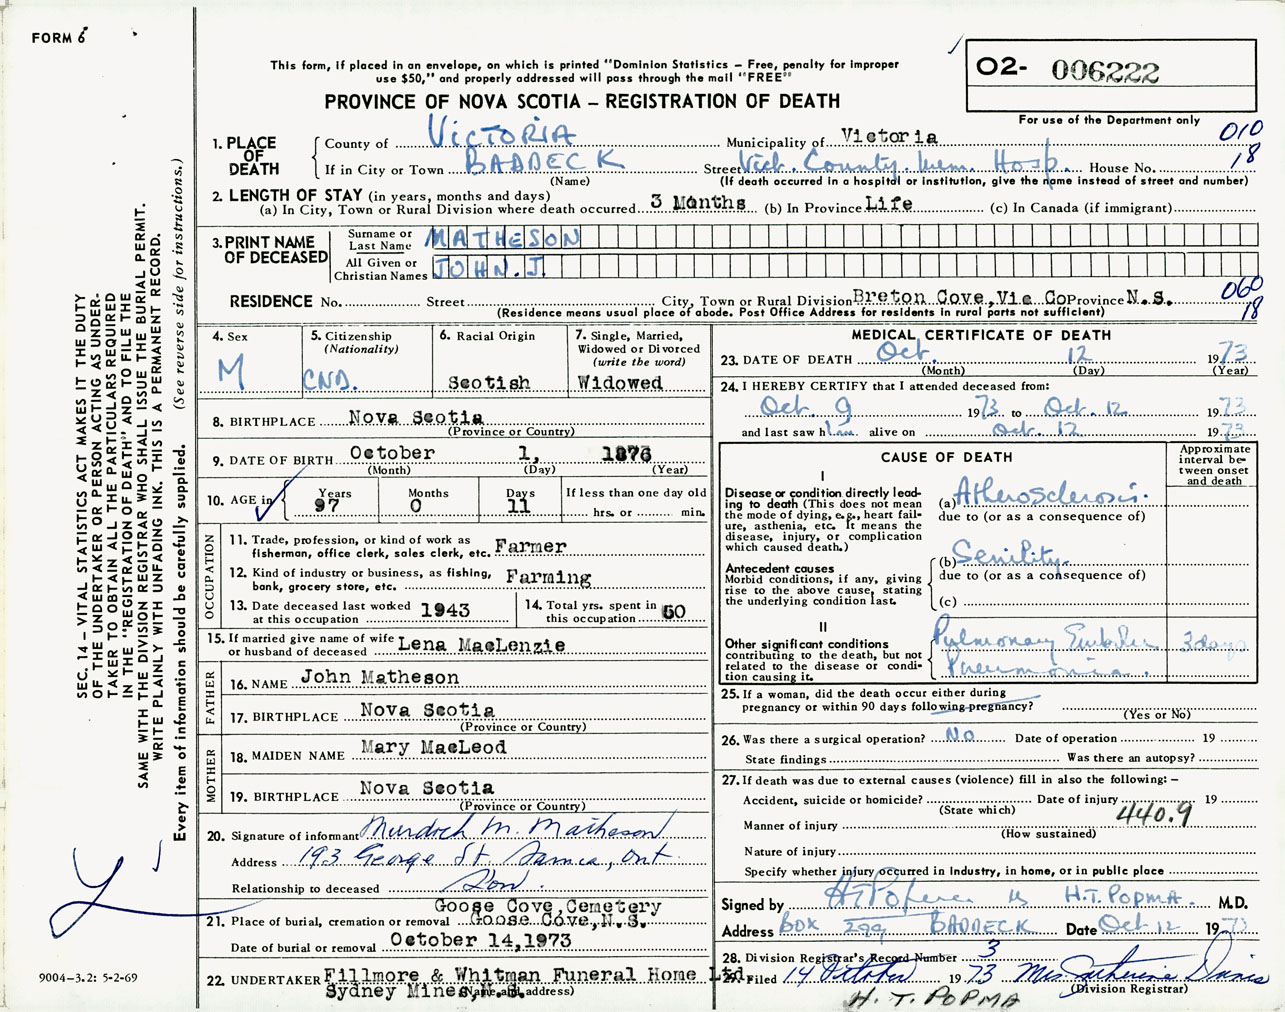 FORM 6
This form, if placed in an envelope, on which is printed "Dominion Statistics – Free, penalty for improper
use $50," and properly addressed will pass through the mail "FREE"
PROVINCE OF NOVA SCOTIA – REGISTRATION OF DEATH
O2- 006222
For use of the Department only
010
18
1. PLACE OF DEATH
County of VICTORIA Municipality of Victoria
If in City or Town BADDECK Street Vict. County Mem Hosp. House No.
(Name) (If death occurred in a hospital or institution, give the name instead of street and number)
2. LENGTH OF STAY (in years, months and days)
(a) In City, Town or Rural Division where death occurred 3 Months (b) In Province Life (c) In Canada (if immigrant)
3. PRINT NAME OF DECEASED
Surname or Last Name MATHESON
All Given or Christian Names JOHN. J.
060
18
RESIDENCE No. Street City, Town or Rural Division Breton Cove, Vic Co Province N.S.
(Residence means usual place of abode. Post Office Address for residents in rural parts not sufficient)
4. Sex
M
5. Citizenship
(Nationality)
CND.
6. Racial Origin
Scotish
7. Single, Married,
Widowed or Divorced
(write the word)
Widowed
8. BIRTHPLACE Nova Scotia
(Province or Country)
9. DATE OF BIRTH October 1, 1876
(Month) (Day) (Year)
10. AGE in
Years Months Days If less than one day old
97 0 11 hrs. or min.
OCCUPATION
11. Trade, profession, or kind of work as
fisherman, office clerk, sales clerk, etc. Farmer
12. Kind of industry or business, as fishing,
bank, grocery store, etc. Farming
13. Date deceased last worked
at this occupation 1943
14. Total yrs. spent in
this occupation 60
15. If married give name of wife
or husband of deceased Lena MacLenzie
FATHER
16. NAME John Matheson
17. BIRTHPLACE Nova Scotia
(Province or Country)
MOTHER
18. MAIDEN NAME Mary MacLeod
19. BIRTHPLACE Nova Scotia
(Province or Country)
20. Signature of informant Murdoch M. Matheson
Address 193 George St Sarnia, Ont.
Relationship to deceased Son.
Goose Cove Cemetery
21. Place of burial, cremation or removal Goose Cove, N.S.
Date of burial or removal October 14, 1973
22. UNDERTAKER Fillmore & Whitman Funeral Home Ltd.
Sydney Mines, N.S.
(Name and address)
MEDICAL CERTIFICATE OF DEATH
23. DATE OF DEATH Oct. 12 1973
(Month) (Day) (Year)
24. I HEREBY CERTIFY that I attended deceased from:
Oct. 9 1973 to Oct. 12 1973
and last saw him alive on Oct. 12 1973
CAUSE OF DEATH
Approximate
interval be-
tween onset
and death
I
Disease or condition directly lead-
ing to death (This does not mean
the mode of dying, e.g., heart fail-
ure, asthenia, etc. It means the
disease, injury, or complication
which caused death.)
(a) Atherosclerosis.
due to (or as a consequence of)
Antecedent causes
Morbid conditions, if any, giving
rise to the above cause, stating
the underlying condition last.
(b) Senility.
due to (or as a consequence of)
(c)
II
Other significant conditions
contributing to the death, but not
related to the disease or condi-
tion causing it.
Pulmonary Embolus 3 days
Pneumonia.
25. If a woman, did the death occur either during
pregnancy or within 90 days following pregnancy?
(Yes or No)
26. Was there a surgical operation? No Date of operation 19
State findings Was there an autopsy?
27. If death was due to external causes (violence) fill in also the following: –
Accident, suicide or homicide? Date of injury 19
(State which)
440.9
Manner of injury
(How sustained)
Nature of injury
Specify whether injury occurred in Industry, in home, or in public place
Signed by H.T. POPMA. M.D.
Address BOX 299 BADDECK Date Oct 12 1973
28. Division Registrar's Record Number 3
29. Filed 14 October 1973 Mrs. Catherine Davis
(Division Registrar)
H. T. POPMA
SEC. 14 – VITAL STATISTICS ACT MAKES IT THE DUTY
OF THE UNDERTAKER OR PERSON ACTING AS UNDER-
TAKER TO OBTAIN ALL THE PARTICULARS REQUIRED
IN THE "REGISTRATION OF DEATH" AND TO FILE THE
SAME WITH THE DIVISION REGISTRAR WHO SHALL ISSUE THE BURIAL PERMIT.
WRITE PLAINLY WITH UNFADING INK. THIS IS A PERMANENT RECORD.
Every item of information should be carefully supplied. (See reverse side for instructions.)
9004-3.2: 5-2-69